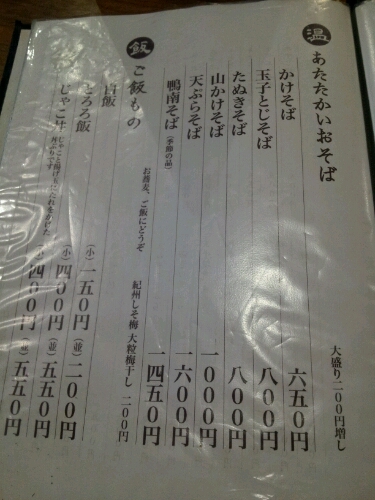 温 あたたかいおそば 大盛り二〇〇円増し
かけそば 六五〇円
玉子とじそば 八〇〇円
たぬきそば 八〇〇円
山かけそば 一〇〇〇円
天ぷらそば 一六〇〇円
鴨南そば(季節の品) 一四五〇円
お蕎麦、ご飯にどうぞ 紀州しそ梅 大粒梅干し 二〇〇円
飯 ご飯もの
白飯 (小)一五〇円 (並)二〇〇円
とろろ飯 (小)四〇〇円 (並)五五〇円
じゃこ丼 (小)四〇〇円 (並)五五〇円